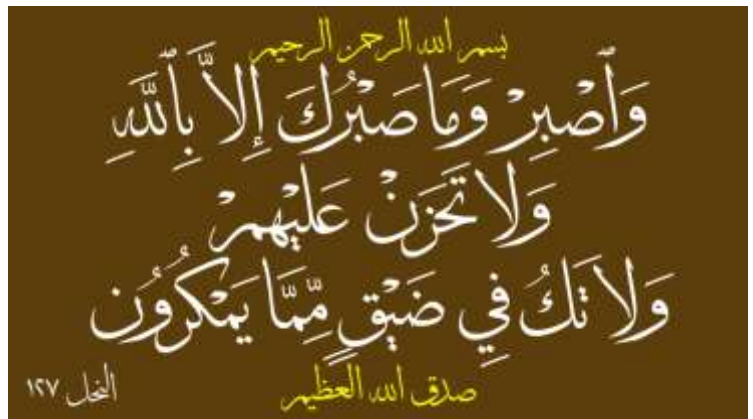 بسم الله الرحمن الرحيم
وَٱصْبِرْ وَمَا صَبْرُكَ إِلَّا بِٱللَّهِ
وَلَا تَحْزَنْ عَلَيْهِمْ
وَلَا تَكُ فِي ضَيْقٍ مِّمَّا يَمْكُرُونَ
صدق الله العظيم
النحل ١٢٧